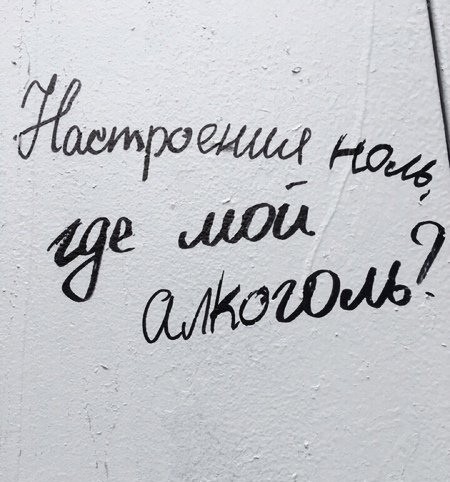 Настроения ноль,
где мой
алкоголь?